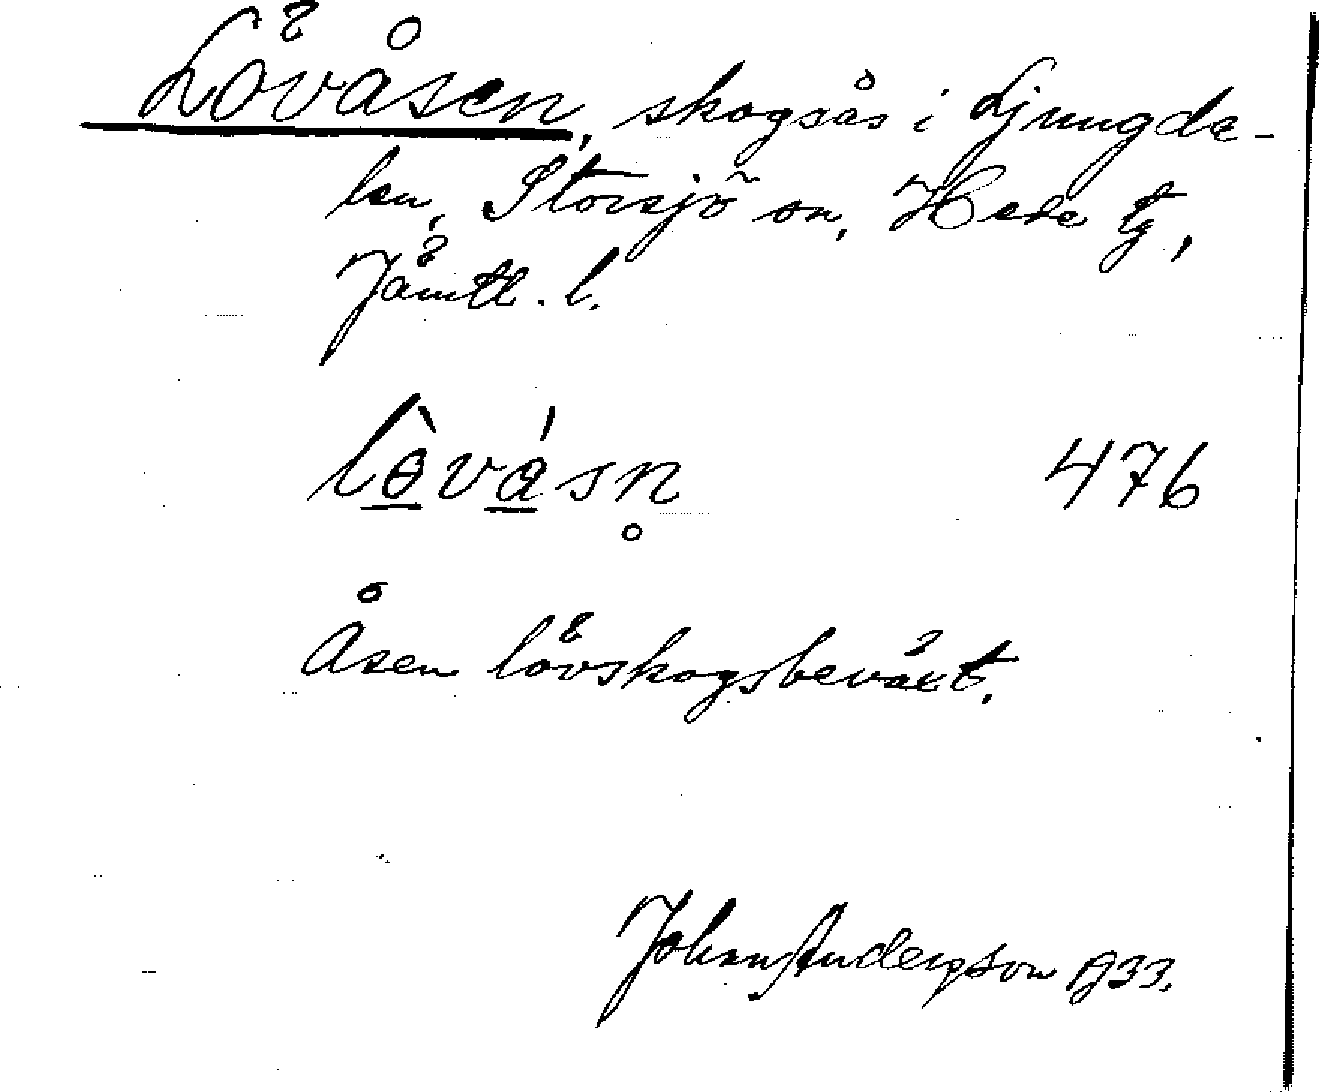 Lövåsen, skogsås i Ljungda-
len, Storsjö sn, Hede tg,
Jämtl. l.
lò̱vá̱sn̥ 476
Åsen lövskogsbeväxt.
Johan Anderzson 1933.